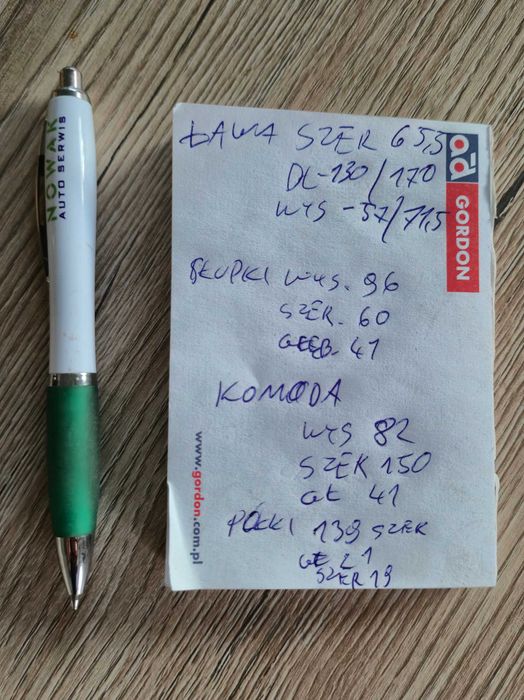 NOWAK
AUTO SERWIS
ŁAWA SZER 65,5
DŁ-130/170
WYS-57/71,5
ad GORDON
SŁUPKI WYS. 96
SZER. 60
GŁĘB. 41
KOMODA
WYS 82
SZER 150
GŁ 41
PÓŁKI 139 SZER
GŁ 21
SZER 19
www.gordon.com.pl